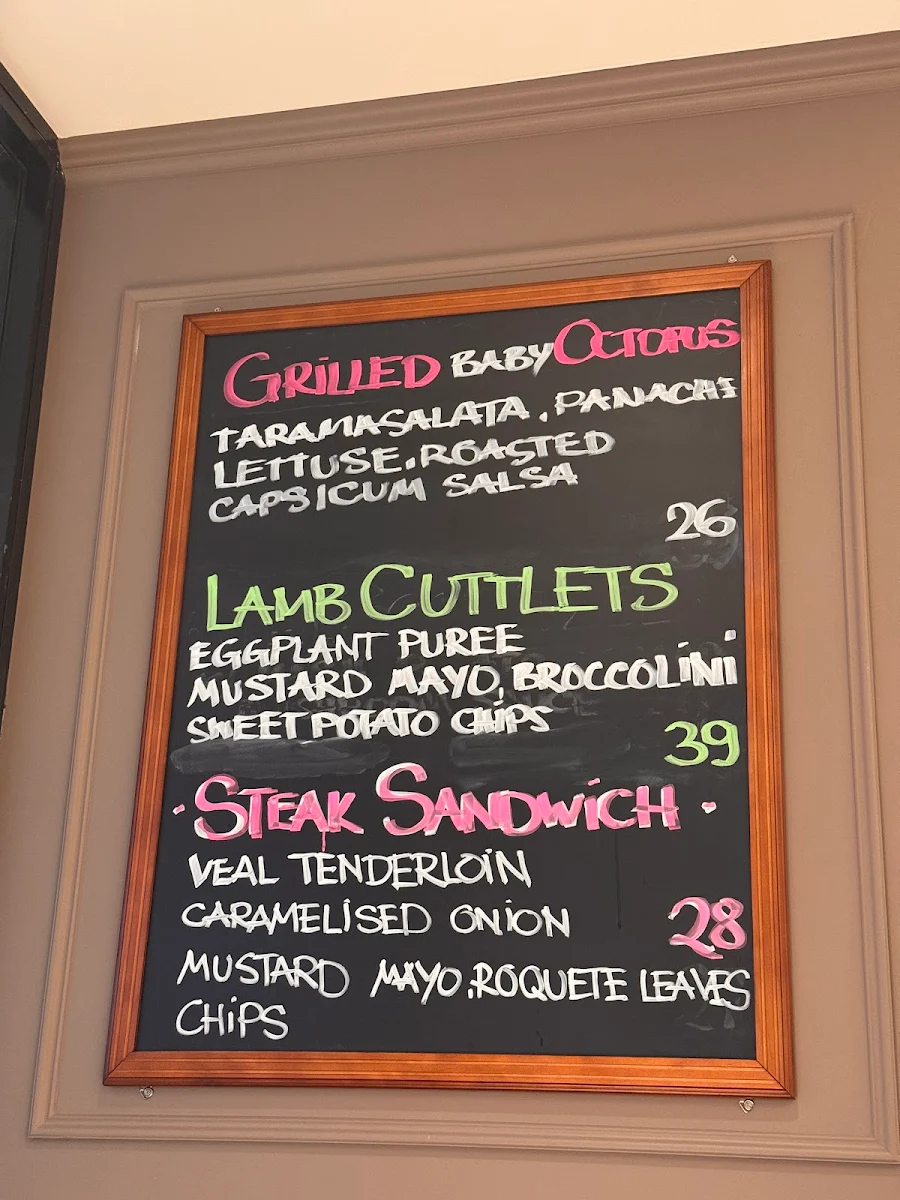 GRiLLED BABY OCTOPUS
TARAMASALATA, PANACHE
LETTUSE, ROASTED
CAPSICUM SALSA
26
LAMB CUTTLETS
EGGPLANT PUREE
MUSTARD MAYO, BROCCOLiNi
SWEET POTATO CHiPS
39
· STEAK SANDWiCH ·
VEAL TENDERLOiN
CARAMELiSED ONiON
28
MUSTARD MAYO, ROQUETE LEAVES
CHiPS